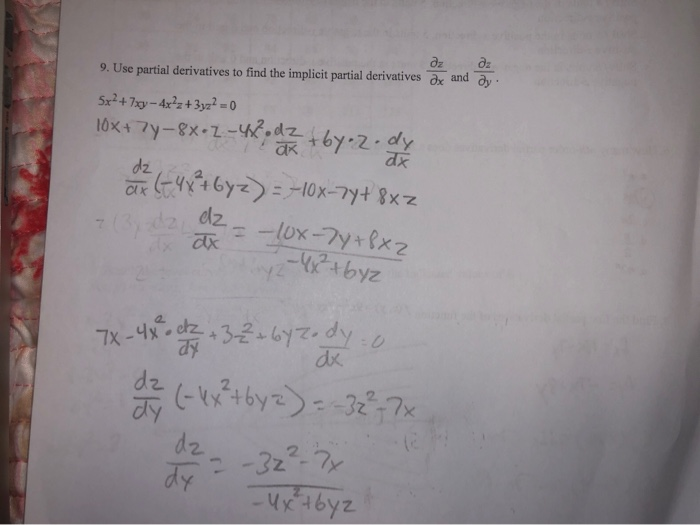 9. Use partial derivatives to find the implicit partial derivatives ∂z/∂x and ∂z/∂y.
5x²+7xy−4x²z+3yz²=0
10x+7y−8x·z−4x²·dz/dx+6y·z·dy/dx
dz/dx(-4x²+6yz)=-10x-7y+8xz
dz/dx = -10x-7y+8xz / -4x²+6yz
7x-4x²·dz/dy+3z²+6yz·dy/dx=0
dz/dy(-4x²+6yz)=-3z²-7x
dz/dy = -3z²-7x / -4x²+6yz